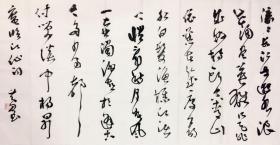 滚滚长江东逝水浪
花淘尽英雄是非
成败转头空青山
依旧在几度夕阳
红白发渔樵江渚
上惯看秋月春风
一壶浊酒喜相逢
古今多少事都
付笑谈中杨升
庵临江仙词